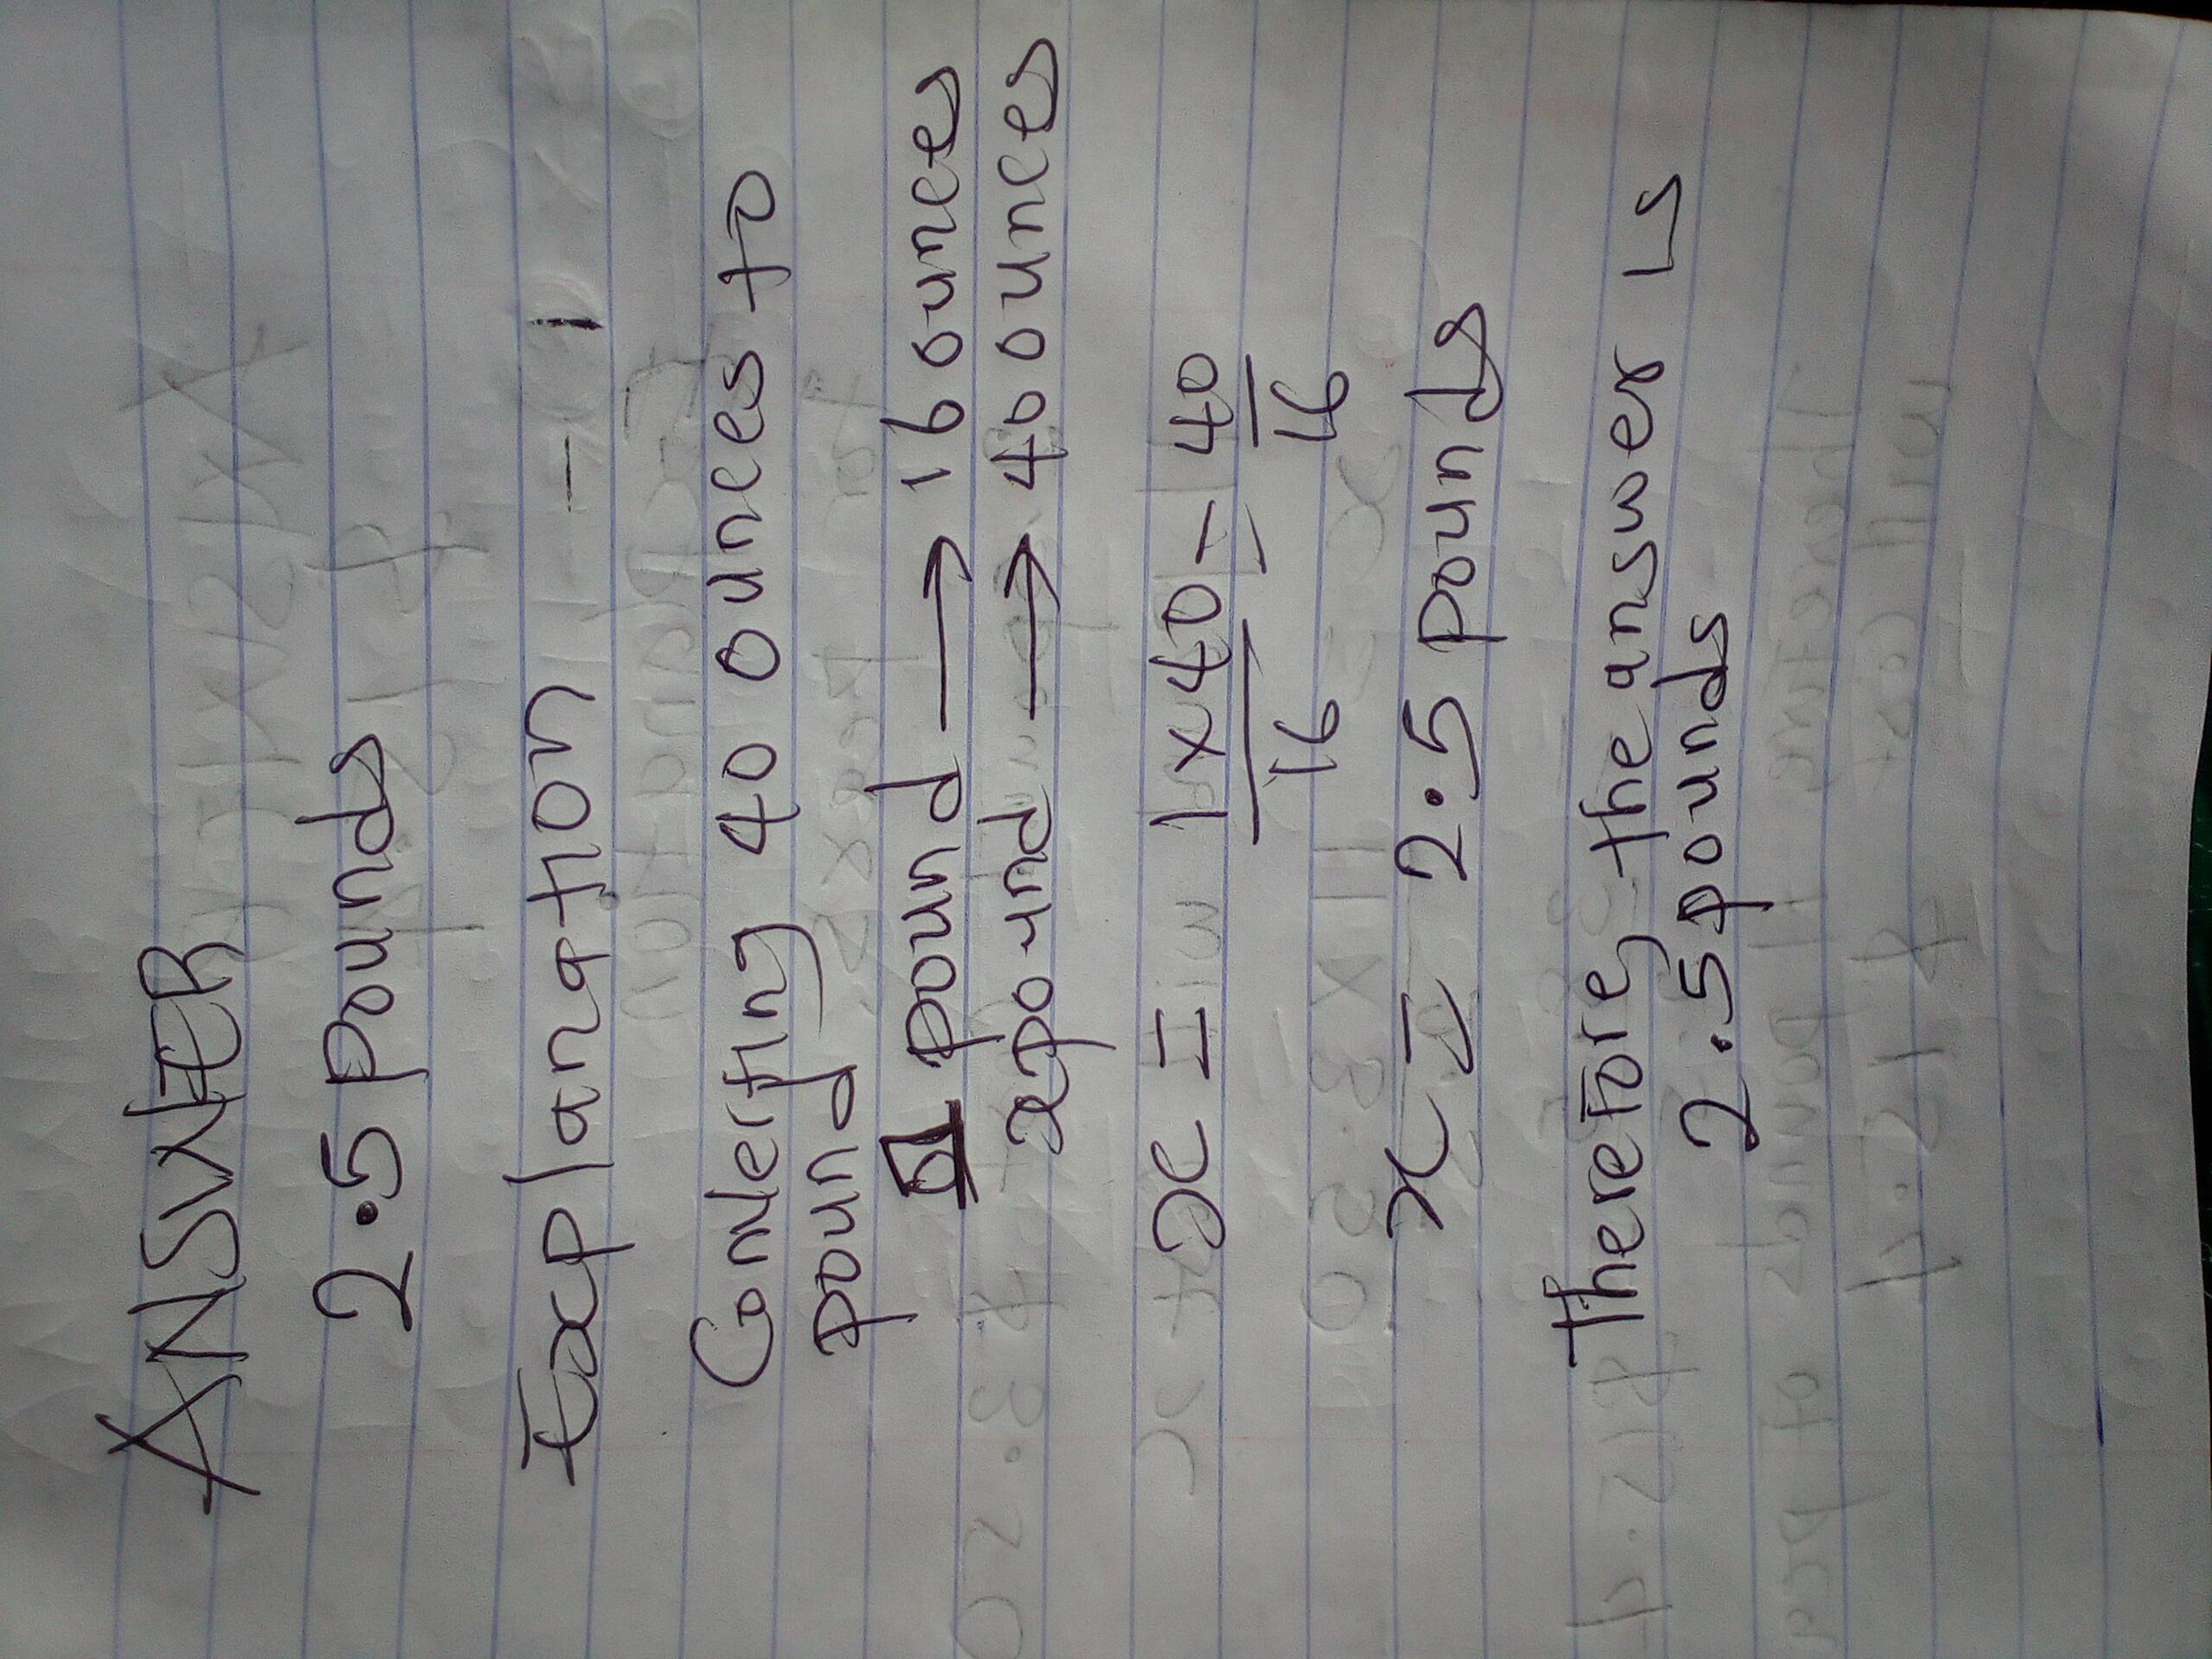 ANSWER
2.5 pounds
Explanation
Converting 40 ounces to
pound
1 pound → 16 ounces
x pound → 40 ounces
x = 1x40 = 40
16 16
x = 2.5 pounds
Therefore, the answer is
2.5 pounds